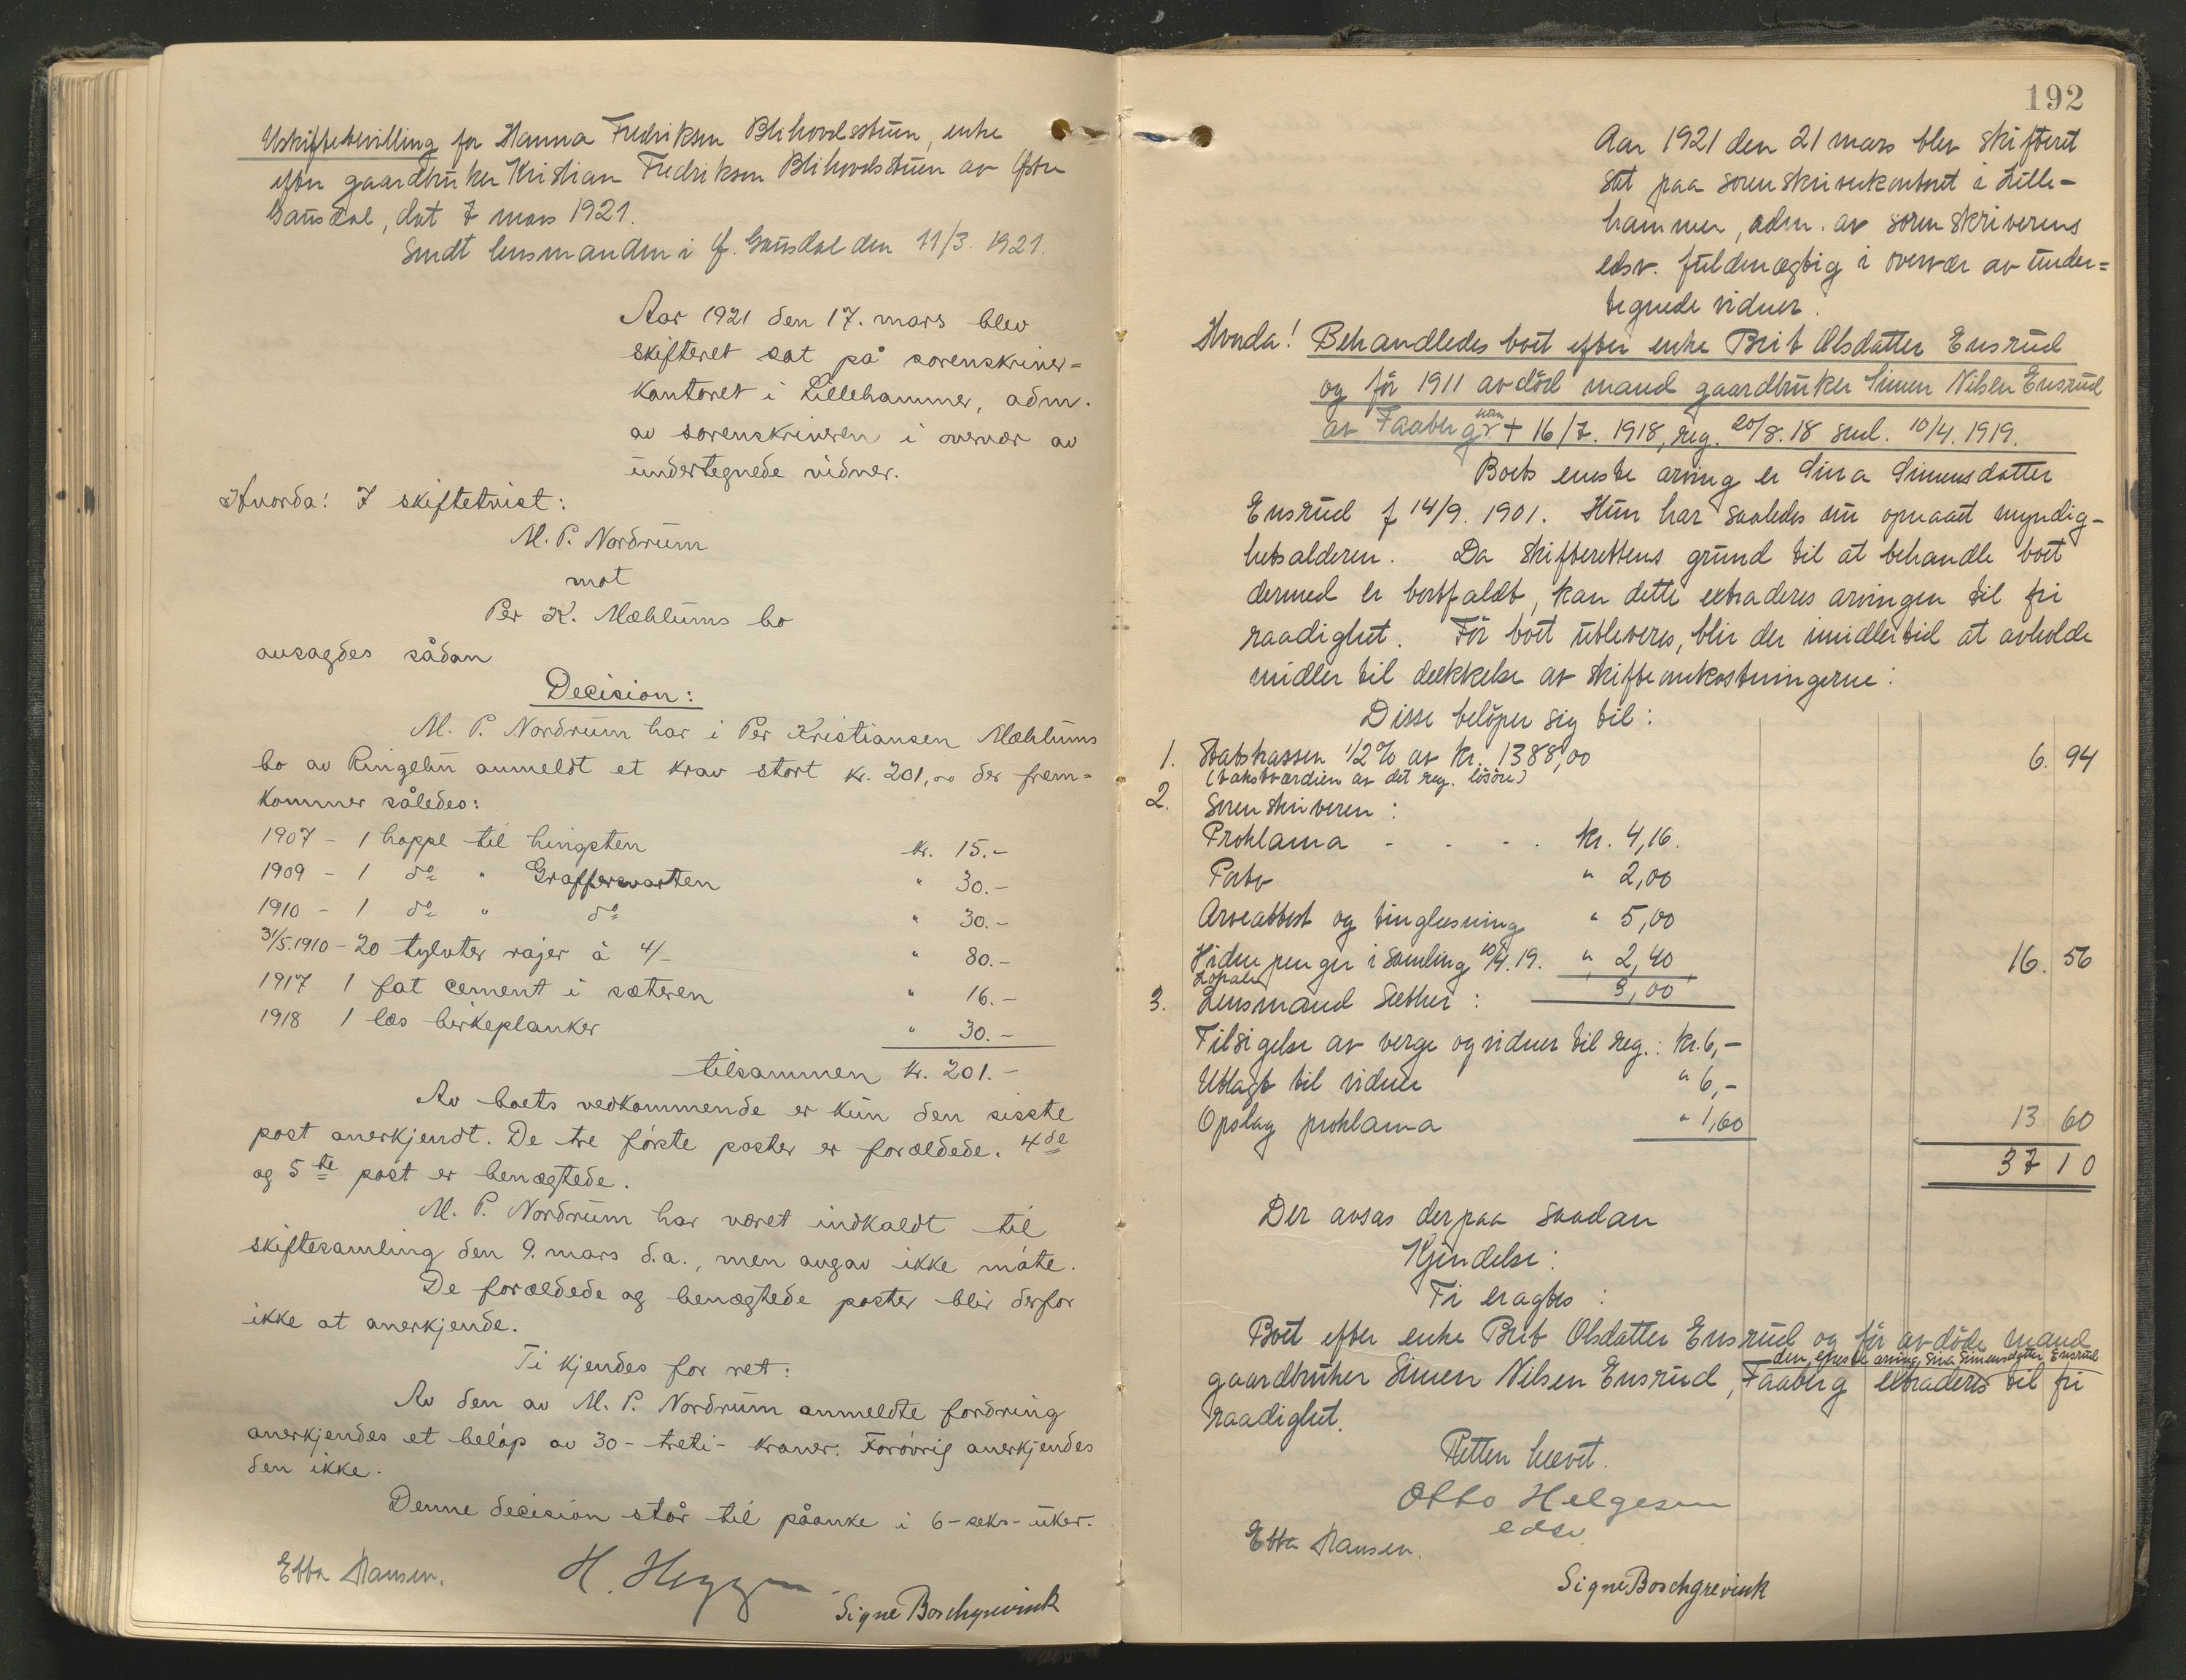 Uskiftebevilling for Hanna Fredriksen Blihovdsstuen, enke
efter gaardbruker Kristian Fredriksen Blihovdsstuen av Østre
Gausdal, dat 7 mars 1921.
Sendt lensmanden i Ø. Gausdal den 11/3. 1921.
Aar 1921 den 17. mars blev
skifteret sat på sorenskriver=
kontoret i Lillehammer, adm.
av sorenskriveren i overvær av
undertegnede vidner.
Hvorda! I skiftetvist:
M. P. Nordrum
mot
Per K. Mæhlums bo
avsagdes sådan
Decision:
M. P. Nordrum har i Per Kristiansen Mæhlums
bo av Ringebu anmeldt et krav stort kr. 201,00 der frem=
kommer således:
1907 – 1 hoppe til hingsten kr. 15.-
1909 – 1 do " Graffersvarten " 30.-
1910 – 1 do " do " 30.-
31/5.1910 – 20 tylvter rajer à 4/- " 80.-
1917 1 fat cement i sæteren " 16.-
1918 1 læs birkeplanker " 30.-
tilsammen kr. 201.-
Av boets vedkommende er kun den sisste
post anerkjendt. De tre første poster er forældede. 4de
og 5te post er benægtede.
M. P. Nordrum har været indkaldt til
skiftesamling den 9. mars d.a., men avgav ikke møte.
De forældede og benægtede poster blir derfor
ikke at anerkjende.
Ti kjendes for ret:
Av den av M. P. Nordrum anmeldte fordring
anerkjendes et beløp av 30 - treti - kroner. Forøvrig anerkjendes
den ikke.
Denne decision står til påanke i 6 - seks - uker.
Ebba Hansen. H. Heggen Signe Boschgrevink
192
Aar 1921 den 21 mars blev skifteret
sat paa sorenskriverkontoret i Lille-
hammer, adm. av sorenskriverens
edsv. fuldmægtig i overvær av under=
tegnede vidner.
Hvorda! Behandledes boet efter enke Brit Olsdatter Ensrud
og før 1911 avdød mand gaardbruker Simen Nilsen Ensrud
av Faaberg, hun + 16/7. 1918, reg. 20/8.18 sml. 10/4. 1919.
Boets eneste arving er Sina Simensdatter
Ensrud f 14/9. 1901. Hun har saaledes nu opnaaet myndig-
hetsalderen. Da skifterettens grund til at behandle boet
dermed er bortfaldt, kan dette extraderes arvingen til fri
raadighet. Før boet utleveres, blir der imidlertid at avholde
midler til dækkelse av skifteomkostningerne:
Disse beløper sig til:
1. Statskassen 1/2 % av kr. 1388,00 6. 94
(takstværdien av det reg. løsøre)
2. Sorenskriveren:
Proklama - . - . kr. 4,16.
Porto " 2,00
Arveattest og tinglæsning " 5,00
Vidnepenger i samling 10/4.19. " 2,40 16. 56
Lokale 3,00
3. Lensmand Sæther:
Tilsigelse av verge og vidner til reg.: kr. 6,-
Utlagt til vidner " 6,-
Opslag proklama " 1,60 13 60
37 10
Der avsas derpaa saadan
Kjendelse:
Ti eragtes:
Boet efter enke Brit Olsdatter Ensrud og før avdøde mand
den eneste arving, Sina Simensdatter Ensrud
gaardbruker Simen Nilsen Ensrud, Faaberg extraderes til fri
raadighet.
Retten hævet.
Otto Helgesen
edsv.
Ebba Hansen.
Signe Boschgrevink